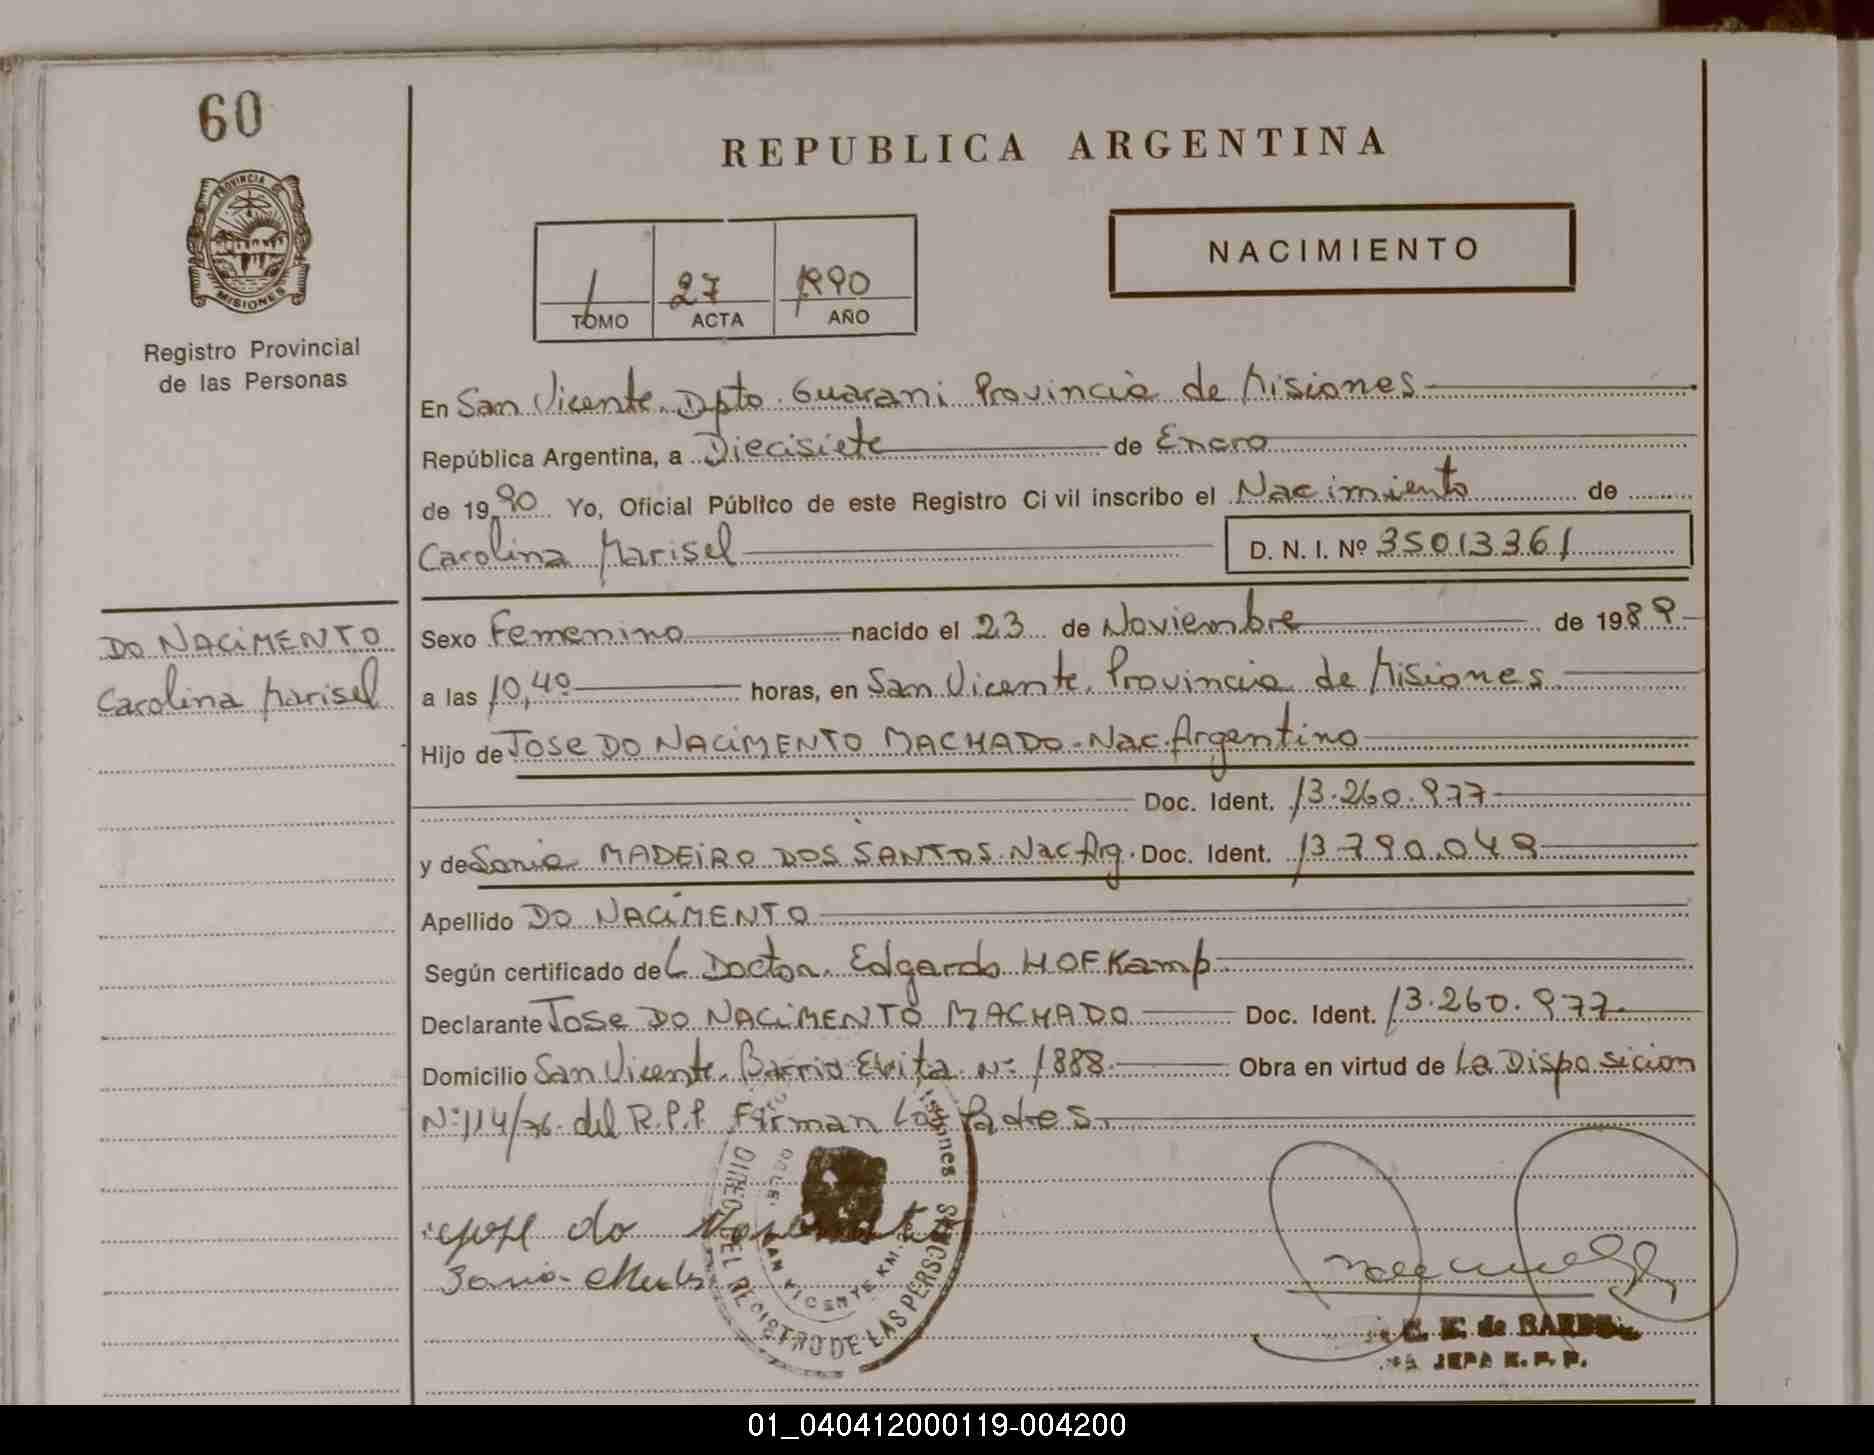 60
PROVINCIA DE
MISIONES
Registro Provincial
de las Personas
REPUBLICA ARGENTINA
1 27 1990
TOMO ACTA AÑO
NACIMIENTO
En San Vicente. Dpto. Guarani Provincia de Misiones
República Argentina, a Diecisiete de Enero
de 1990 Yo, Oficial Público de este Registro Civil inscribo el Nacimiento de
Carolina Marisel D. N. I. Nº 35013361
DO NACIMENTO
Carolina Marisel
Sexo Femenino nacido el 23 de Noviembre de 1989
a las 10,40 horas, en San Vicente. Provincia de Misiones
Hijo de Jose DO NACIMENTO MACHADO. Nac. Argentino
Doc. Ident. 13.260.977
y de Sonia MADEIRO DOS SANTOS. Nac Arg. Doc. Ident. 13.790.049
Apellido DO NACIMENTO
Según certificado del Doctor. Edgardo HOFKamp
Declarante Jose DO NACIMENTO MACHADO Doc. Ident. 13.260.977.
Domicilio San Vicente. Barrio Evita Nº 1888. Obra en virtud de La Disposicion
Nº 114/76. del R.P.P. Firman Los Padres.
do
Sonia
DIREC DEL REGISTRO DE LAS PERSONAS
SAN VICENTE KM.
de
JEFA R. P. P.
01_040412000119-004200